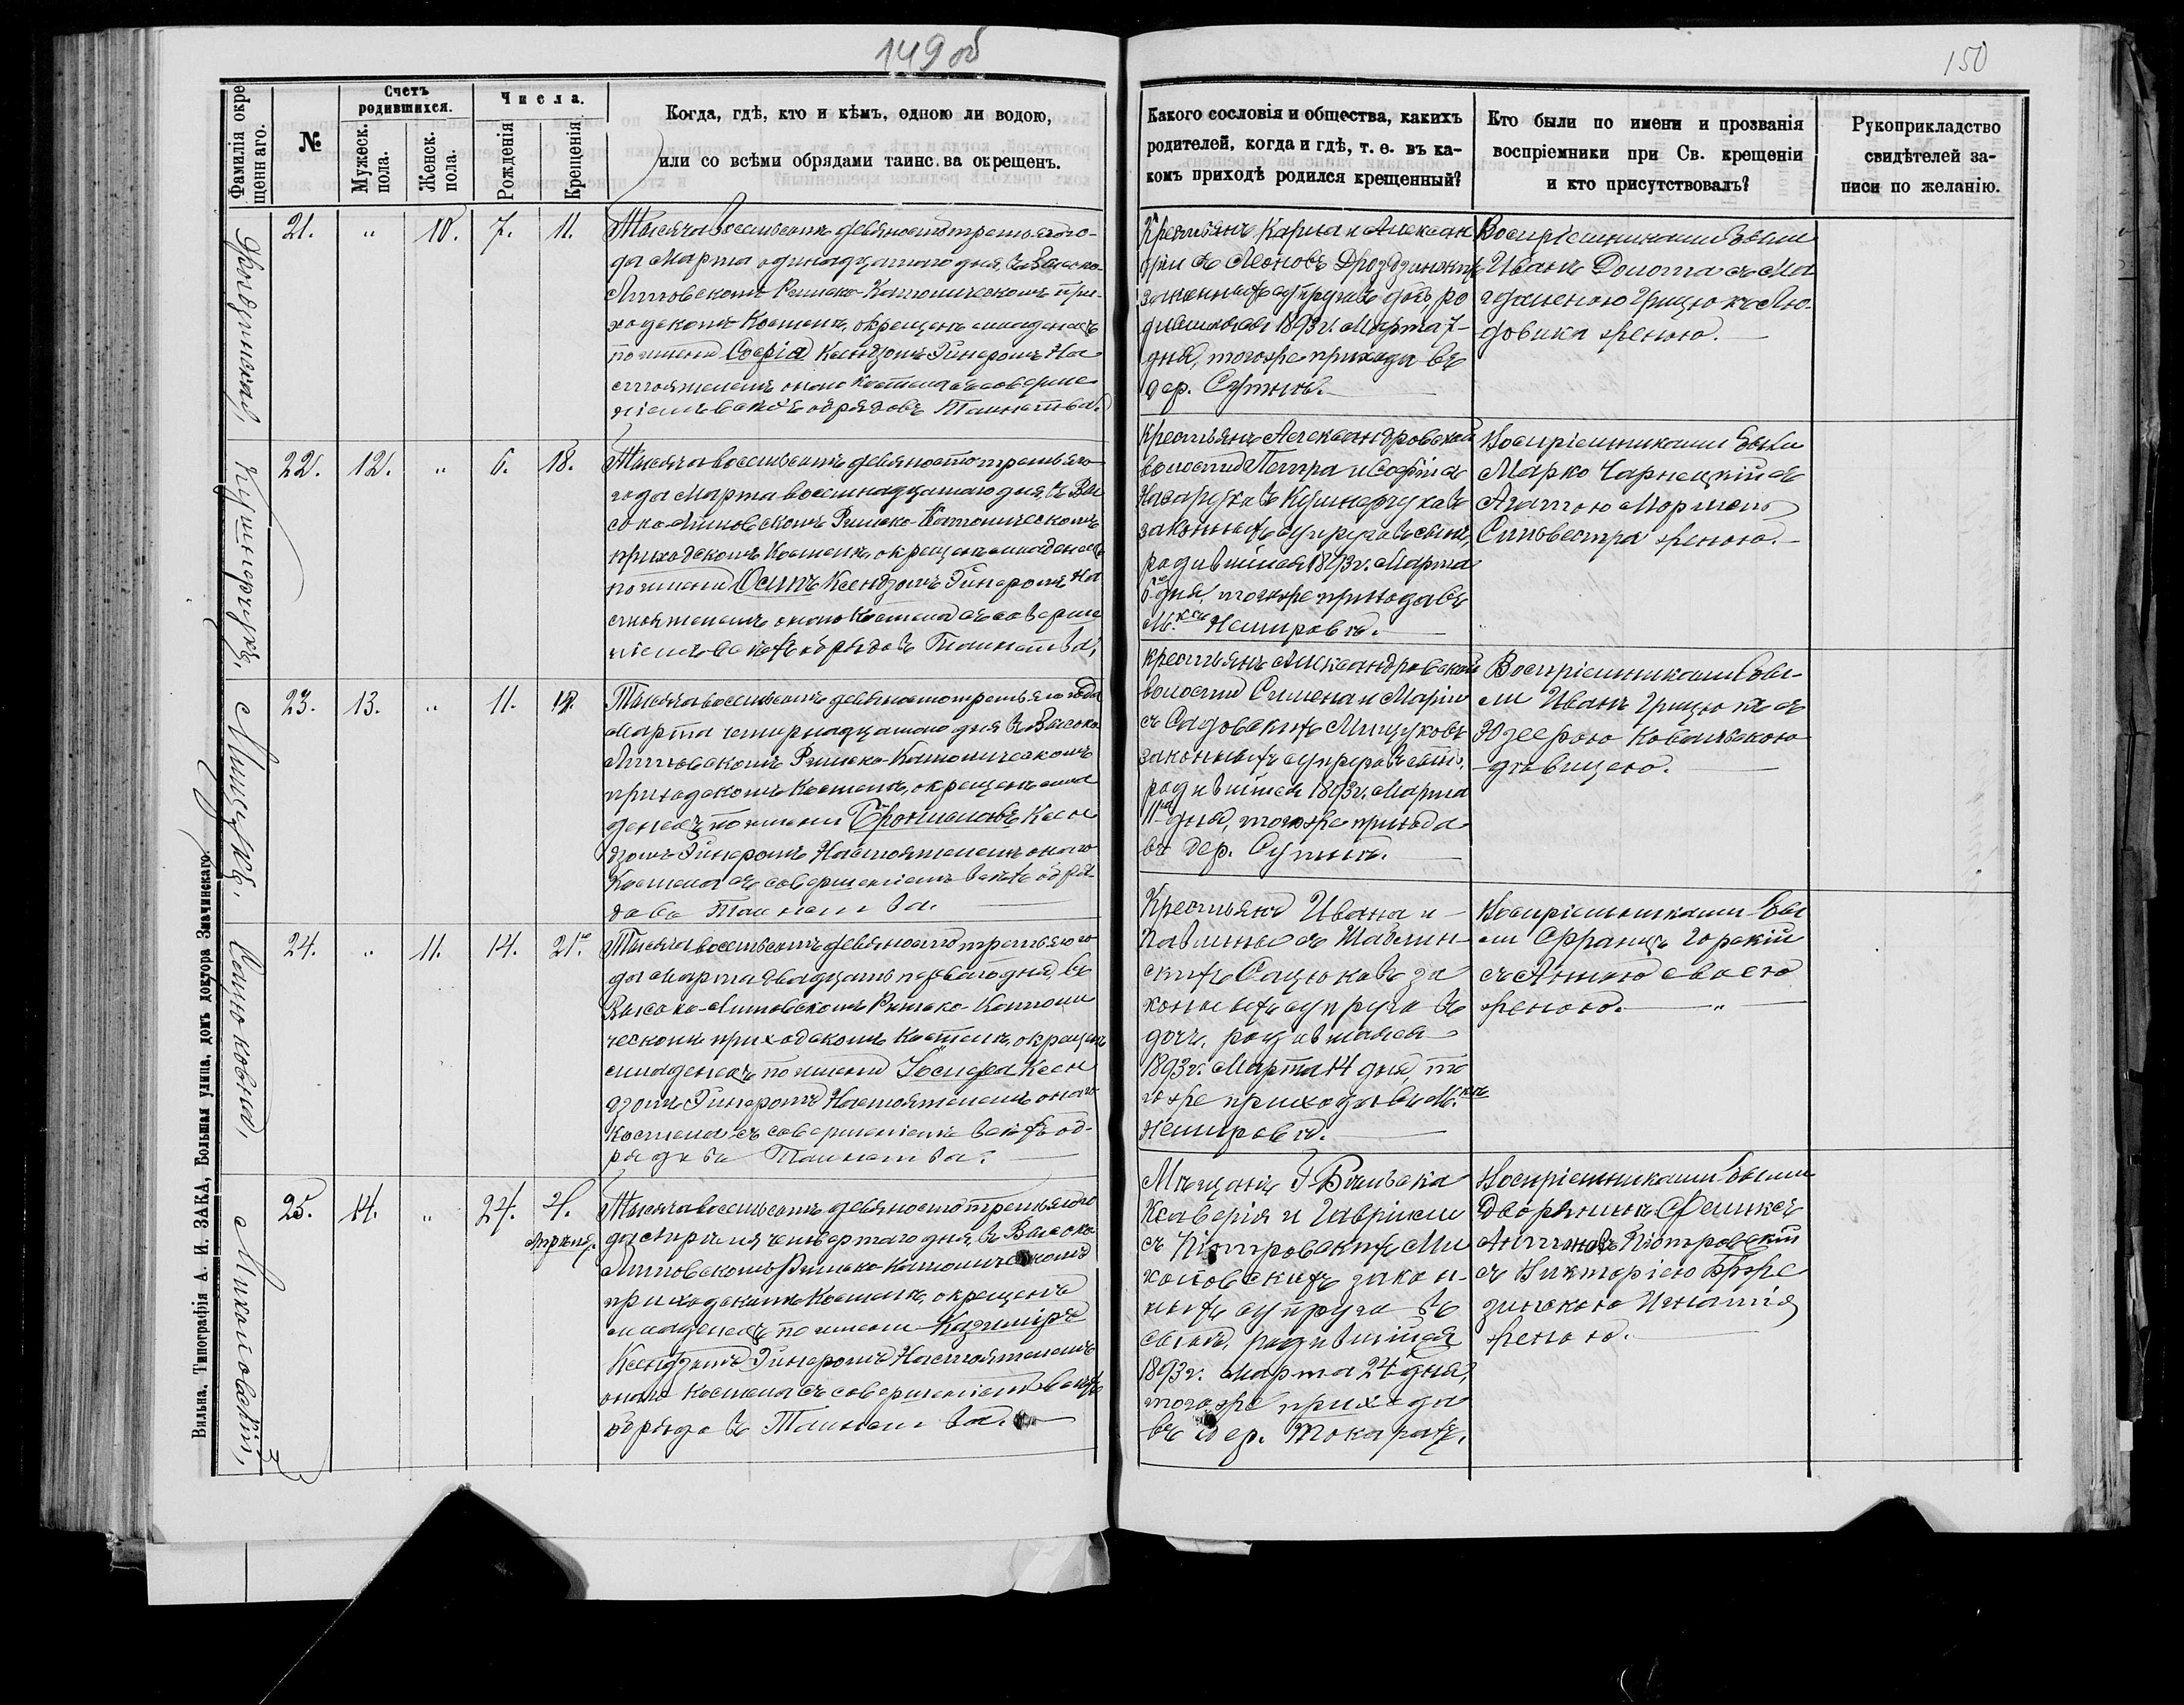 149 об
150
Фамилія окрещеннаго.
№
Счетъ родившихся.
Мужеск. пола.
Женск. пола.
Числа.
Рожденія
Крещенія
Когда, гдѣ, кто и кѣмъ, одною ли водою,
или со всѣми обрядами таинс. ва окрещенъ.
Какого сословія и общества, какихъ
родителей, когда и гдѣ, т. е. въ ка-
комъ приходѣ родился крещенный?
Кто были по имени и прозванія
воспріемники при Св. крещеніи
и кто присутствовалъ?
Рукоприкладство
свидѣтелей за-
писи по желанію.
21. " 10. 7. 11.
Тысяча восемьсотъ девяносто третьяго го-
да Марта одинадцатаго дня, въ Высоко-
Литовскомъ Римско-Католическомъ при-
ходскомъ Костелѣ, окрещенъ младенецъ
по имени Софія Ксендзомъ Гинеромъ На
стоятелемъ онаго Костела съ соверше
ніемъ всѣхъ обрядовъ Таинства.
Крестьянъ Карла и Алексан
дри съ
законныхъ супруговъ дочь, ро
дившаяся 1893 г. Марта 7-
дня, тогоже прихода въ
дер. Сутнѣ.
Воспріемниками были
Иванъ Долота съ Ма
гдаленою Грицюкъ Лю-
довика женою.
Кушнерчукъ,
22. 12. " 6. 18.
Тысяча восемьсотъ девяносто третьяго
года Марта восемнадцатаго дня, въ Вы
соко-Литовскомъ Римско-Католическомъ
приходскомъ Костелѣ, окрещенъ младенецъ
по имени Осипъ Ксендзомъ Гинеромъ На
стоятелемъ онаго Костела съ соверше
ніемъ всѣхъ обрядовъ Таинства,
Крестьянъ Александровской
волости Петра и Софіи съ
Назаруковъ Кушнерчуковъ
законныхъ супруговъ сынъ,
родившійся 1893 г. Марта
6 дня, тогоже прихода въ
м.кѣ Немировѣ.
Воспріемниками были
Марко Чарнецкій съ
Агатою
Сильвестра женою.
Мищукъ.
23. 13. " 11.
Тысяча восемьсотъ девяносто третьяго года
Марта четырнадцатаго дня въ Высоко
Литовскомъ Римско-Католическомъ
приходскомъ Костелѣ, окрещенъ мла
денецъ по имени Брониславъ Ксен
дзомъ Гинеромъ Настоятелемъ онаго
Костела съ совершеніемъ всѣхъ обря-
довъ Таинства.
крестьянъ Александровской
волости Симеона и Маріи
съ Садовскихъ Мищуковъ
законныхъ супруговъ сынъ,
родившійся 1893 г. Марта
11 дня, тогоже прихода
въ дер. Сутнѣ.
Воспріемниками бы-
ли Иванъ Грицюкъ съ
Юзефою Ковальскою
дѣвицею.
Сацюковна,
24. " 11. 14. 21.
Тысяча восемьсотъ девяносто третьяго го
да Марта двадцать перваго дня, въ
Высоко-Литовскомъ Римско-Католи
ческомъ приходскомъ Костелѣ, окрещенъ
младенецъ по имени Іосифа Ксен
дзомъ Гинеромъ Настоятелемъ онаго
Костела съ совершеніемъ всѣхъ об-
рядовъ Таинства.
Крестьянъ Ивана и
Павлины съ
Сацюковъ за
конныхъ супруговъ
дочь, родившаяся
1893 г. Марта 14 дня, то
гоже прихода въ м.кѣ
Немировѣ.
Воспріемниками бы
ли Францъ Горскій
съ Анною своею
женою. "
Михаловскій,
25. 14. " 24. 4.
Апрѣля.
Тысяча восемьсотъ девяносто третьяго го
да Апрѣля четвертаго дня, въ Высоко
Литовскомъ Римско-Католическомъ
приходскомъ Костелѣ, окрещенъ
младенецъ по имени Казиміръ
Ксендзомъ Гинеромъ Настоятелемъ
онаго Костела съ совершеніемъ всѣхъ
обрядовъ Таинства.
Мѣщанъ Г. Бѣльска
Ксаверія и Габріели
съ Піотровскихъ Ми
халовскихъ закон-
ныхъ супруговъ
сынъ, родившійся
1893 г. Марта 24 дня,
тогоже прихода
въ дер. Токарахъ.
Воспріемниками были
Дворянинъ Феликсъ
Піотровскій
съ Викторіею
Игнатія
женою.
Вильна. Типографія А. И. ЗАКА, Большая улица, домъ доктора Значинскаго.